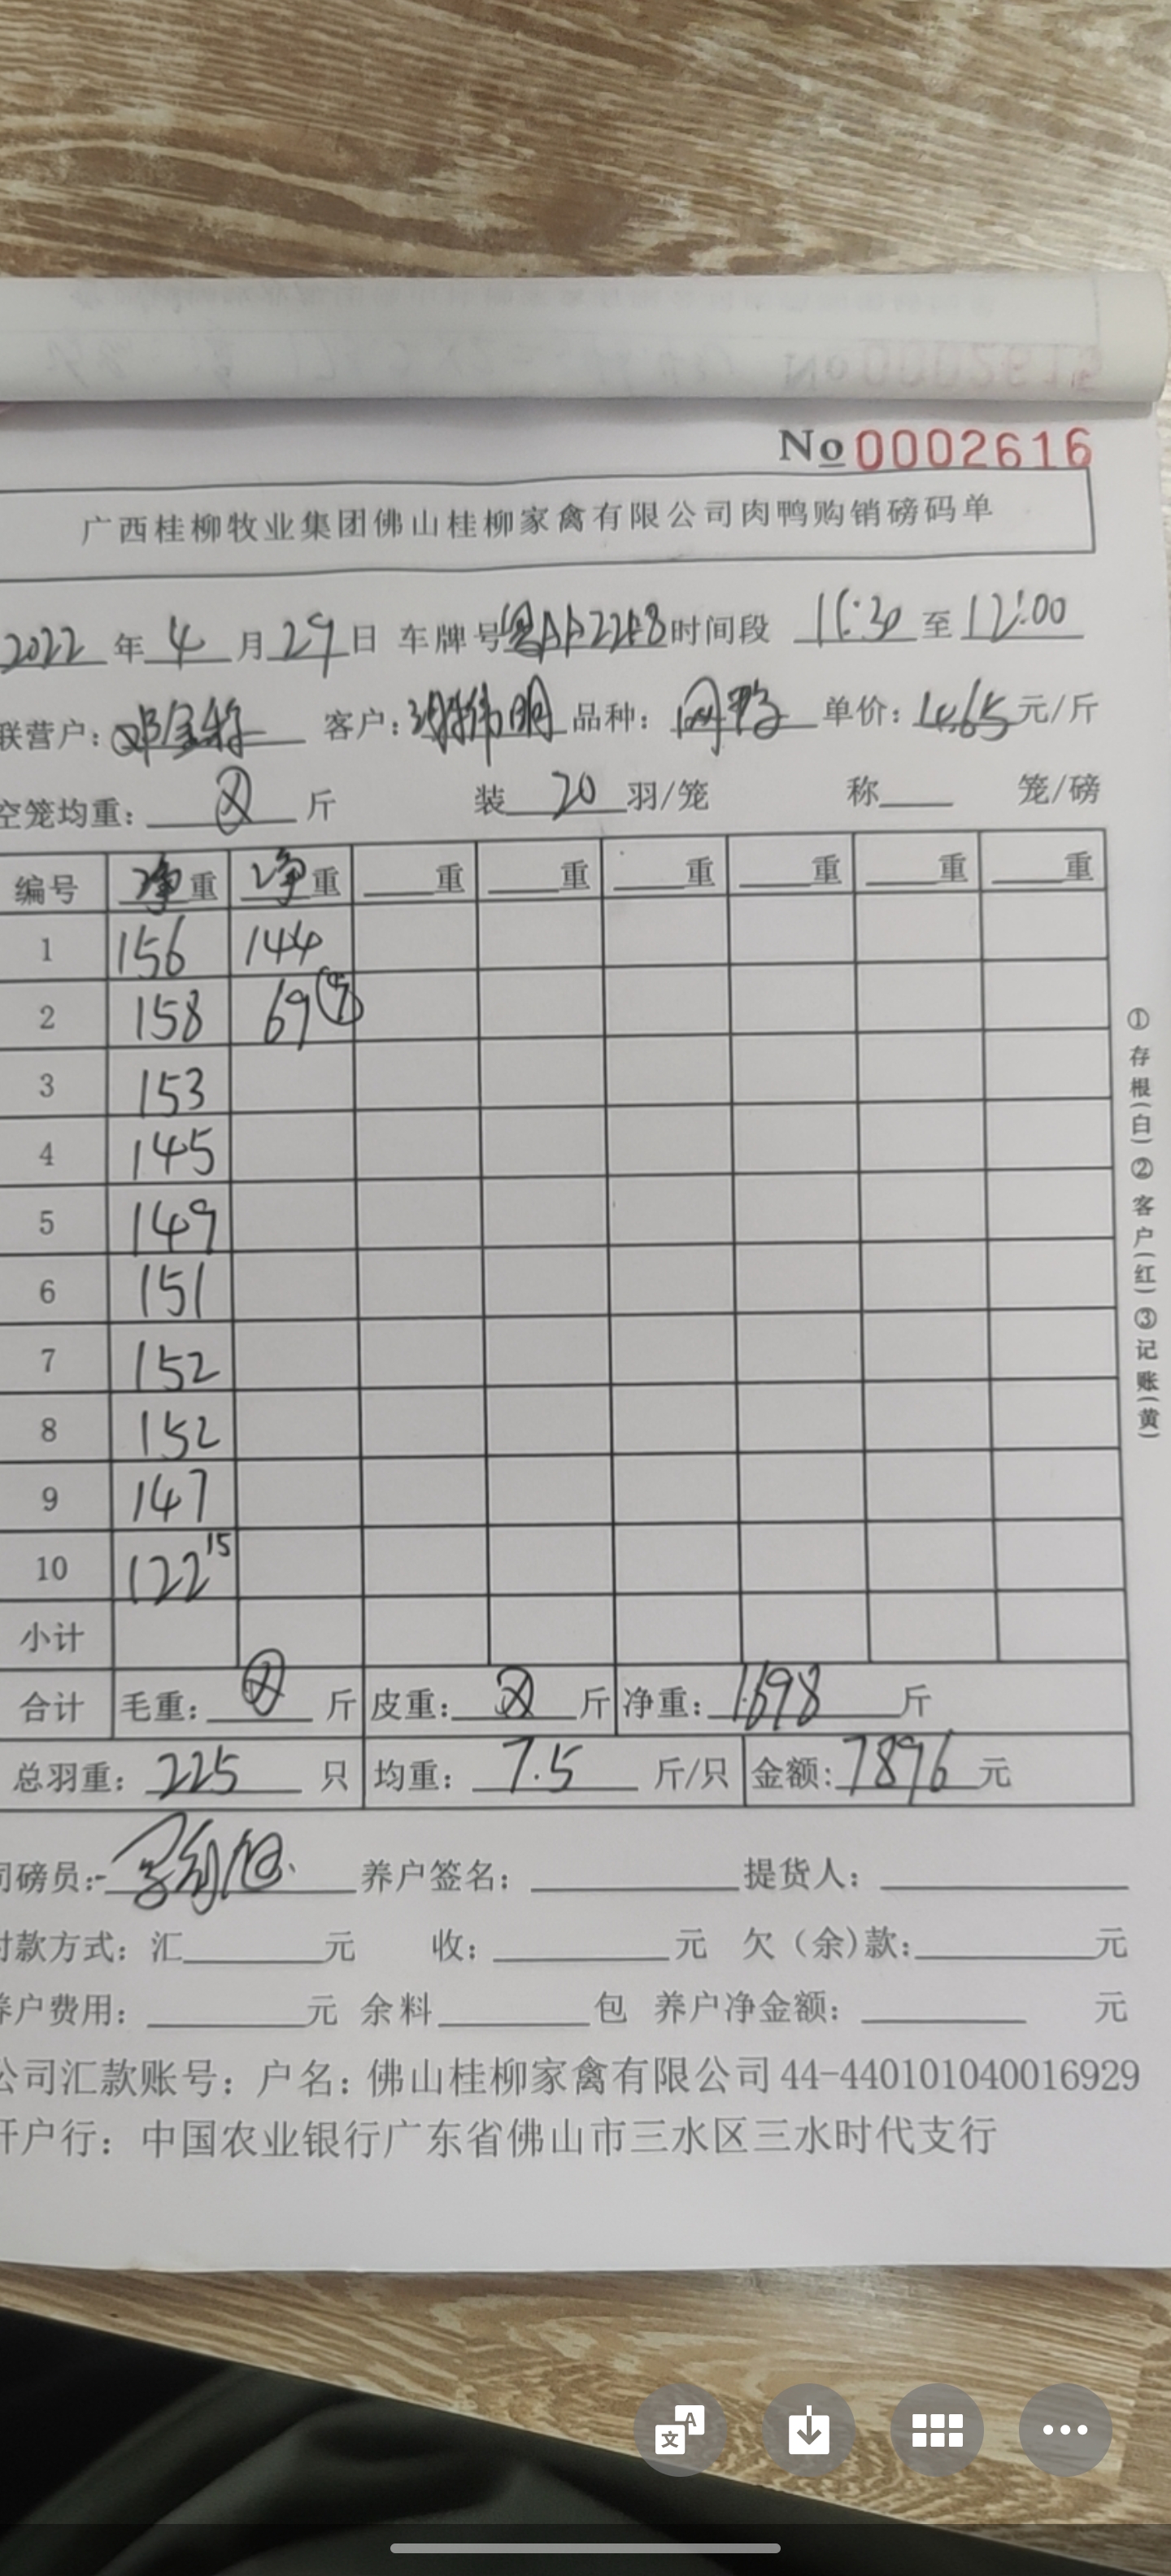 No 0002616
广西桂柳牧业集团佛山桂柳家禽有限公司肉鸭购销磅码单
2022 年 4 月 29 日 车牌号 时间段 11:30 至 12:00
联营户: 客户: 明 品种: 鸭 单价: 4.65 元/斤
空笼均重: 斤 装 20 羽/笼 称 笼/磅
编号 净重 净重 重 重 重 重 重 重
1 156 144
2 158 69
3 153
4 145
5 149
6 151
7 152
8 152
9 147
10 122 15
小计
合计 毛重: 斤 皮重: 斤 净重: 1698 斤
总羽重: 225 只 均重: 7.5 斤/只 金额: 7896 元
司磅员: 养户签名: 提货人:
付款方式: 汇 元 收: 元 欠(余)款: 元
养户费用: 元 余料 包 养户净金额: 元
公司汇款账号: 户名: 佛山桂柳家禽有限公司 44-440101040016929
开户行: 中国农业银行广东省佛山市三水区三水时代支行
①存根(白)②客户(红)③记账(黄)